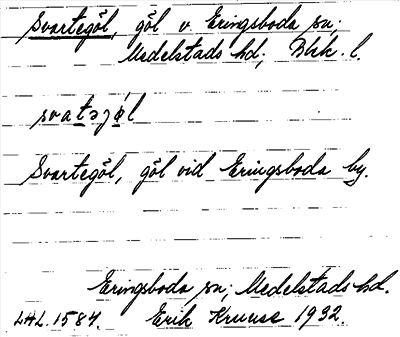 Svartegöl, göl v. Eringsboda sn;
Medelstads hd, Blek. l.
svatəjöl
Svartegöl, göl vid Eringsboda by.
Eringsboda sn; Medelstads hd.
LAL. 1584. Erik Kruuse 1932.